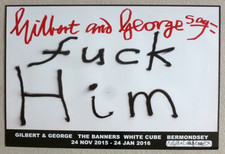 Gilbert and George say:-
fuck
Him
GILBERT & GEORGE THE BANNERS WHITE CUBE BERMONDSEY
24 NOV 2015 - 24 JAN 2016